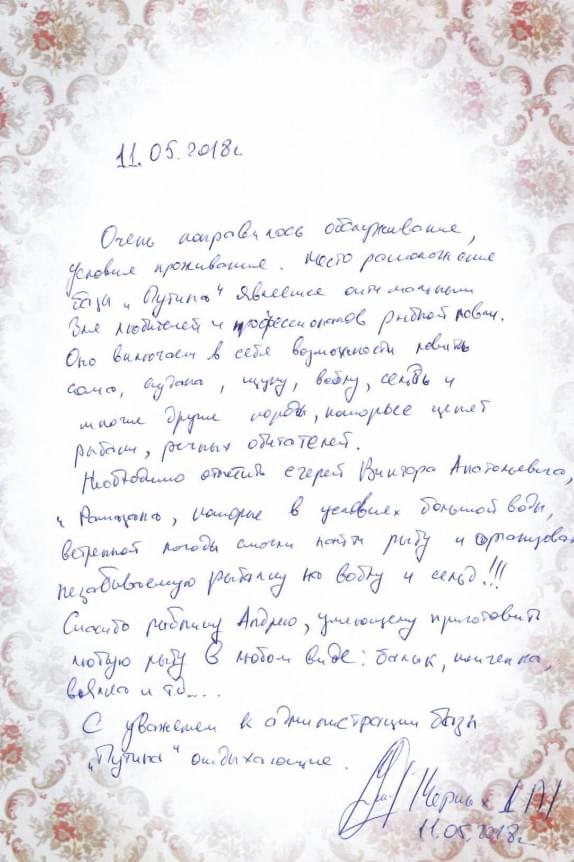 11.05.2018г
Очень понравилось обслуживание,
условие проживание. Место расположение
базы „Путина“ является оптимальным
для любителей и профессионалов рыбной ловли.
Оно включает в себя возможности ловить
сома, судака, щуку, воблу, сельдь и
многие другие породы, которые ценят
рыбаки, речных обитателей.
Необходимо отметить егерей Виктора Анатольевича,
и Рамазана, которые в условиях большой воды,
ветренной погоды смогли найти рыбу и организова
незабываемую рыбалку на воблу и сельд!!!
Спасибо рыбнику Андрею, умеющему приготовить
любую рыбу в любом виде: балык, копченка,
вялка и тд....
С уважением к администрации базы
„Путина“ отдыхающие.
Черных
11.05.2018г